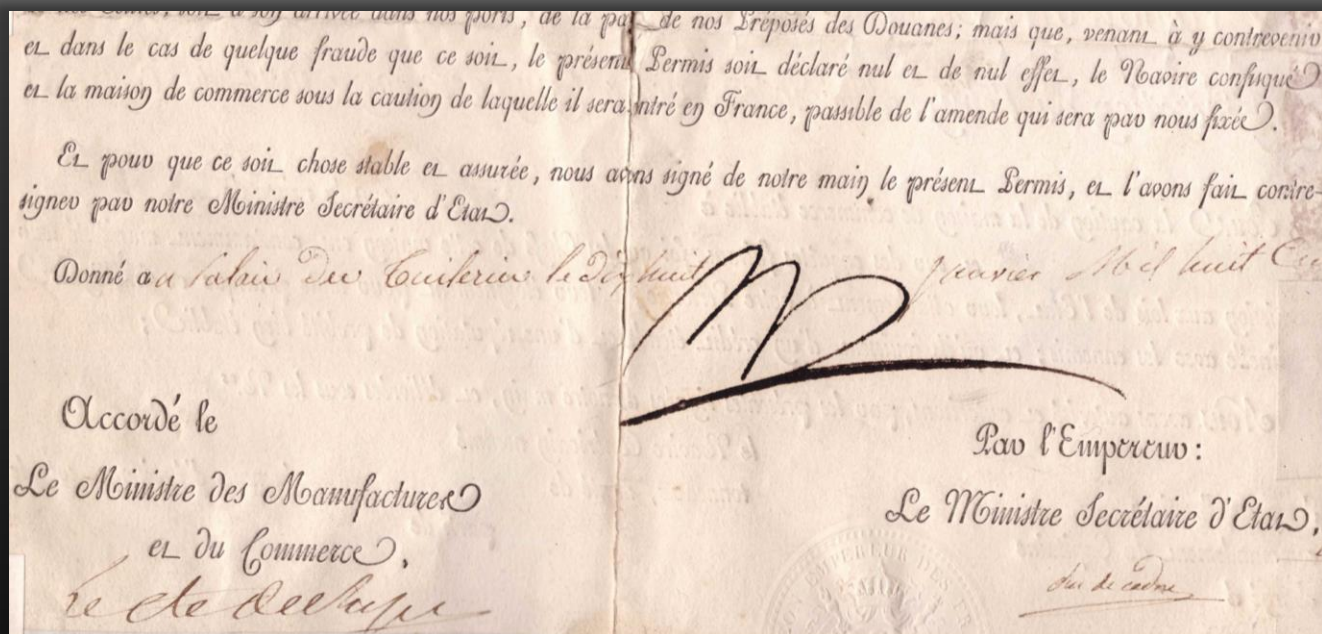 soit à son arrivée dans nos ports, de la part de nos Préposés des Douanes; mais que, venant à y contrevenir
et dans le cas de quelque fraude que ce soit, le présent Permis soit déclaré nul et de nul effet, le Navire confisqué
et la maison de commerce sous la caution de laquelle il sera entré en France, passible de l'amende qui sera par nous fixée.
Et pour que ce soit chose stable et assurée, nous avons signé de notre main le présent Permis, et l'avons fait contre-
signer par notre Ministre Secrétaire d'Etat.
Donné au Palais des Tuileries le dix huit janvier Mil huit
Accordé le
Par l'Empereur:
Le Ministre des Manufactures
Le Ministre Secrétaire d'Etat,
et du Commerce,
duc de cadore